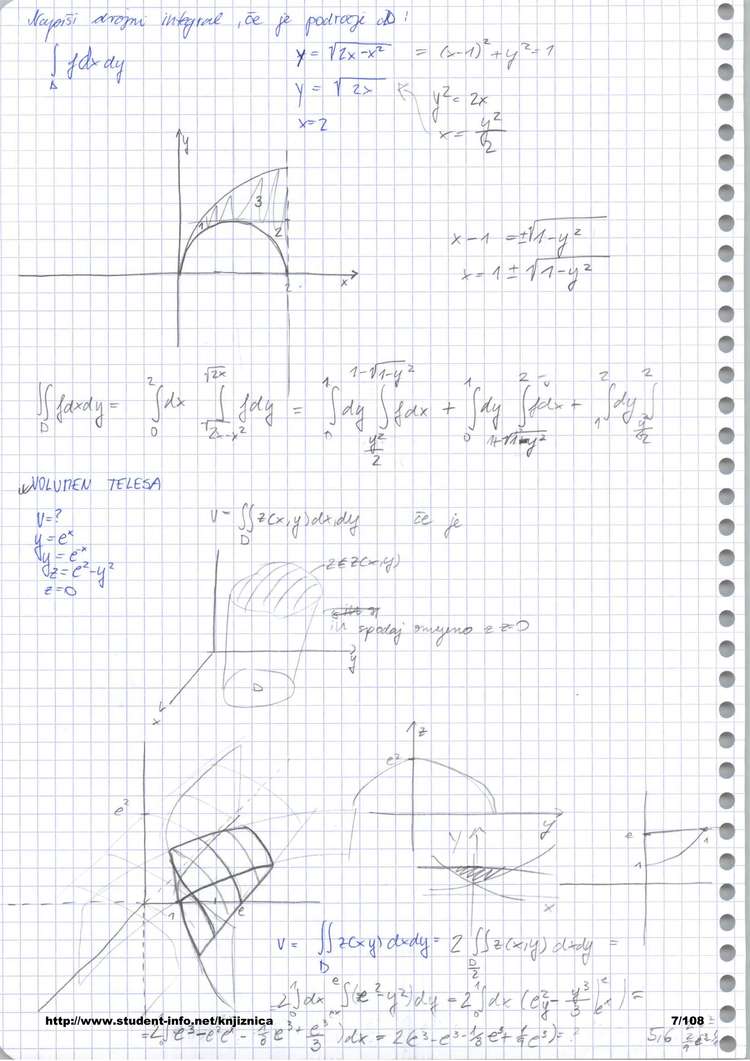 Napiši dvojni integral, če je področje D!
∫_D f dx dy
y = √(2x-x²) = (x-1)² + y² = 1
y = √(2x)
y² = 2x
x = 2
x = y²/2
y
1 3
2
x
2
x - 1 = ±√(1-y²)
x = 1 ± √(1-y²)
∬_D f dx dy = ∫_0^2 dx ∫_{√(2x-x²)}^{√2x} f dy = ∫_0^1 dy ∫_{y²/2}^{1-√(1-y²)} f dx + ∫_0^1 dy ∫_{1+√(1-y²)}^2 f dx + ∫_1^2 dy ∫_{y²/2}^2
VOLUMEN TELESA
V = ?
y = e^x
y = e^-x
z = e² - y²
z = 0
V = ∬_D z(x,y) dx dy če je
z ≤ z(x,y)
in spodaj omejeno z z=0
D
y
x
z
e²
y
e²
Y
x
e
1
1
1
e
V = ∬_D z(x,y) dx dy = 2 ∬_{D/2} z(x,y) dx dy =
2 ∫_0^1 dx ∫_{e^x}^e (e² - y²) dy = 2 ∫_0^1 dx (e²y - y³/3 |_{e^x}^e) =
http://www.student-info.net/knjiznica
7/108